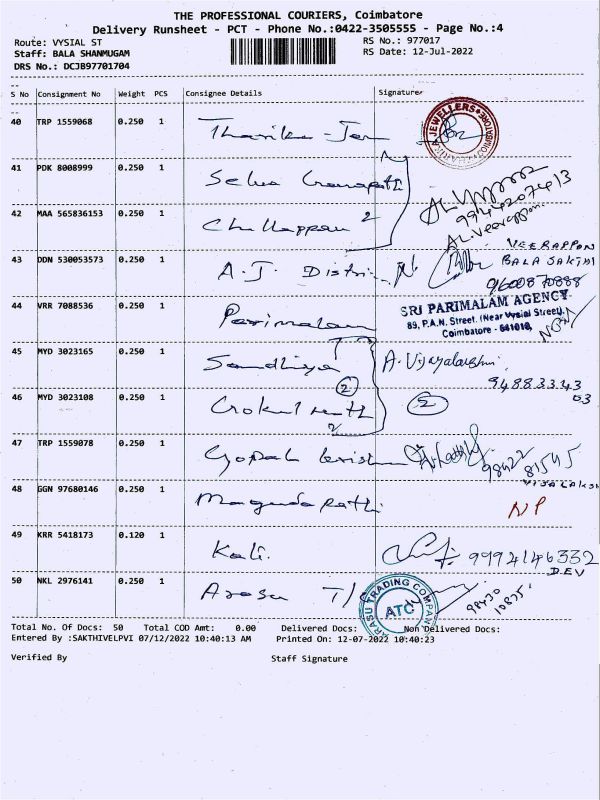 THE PROFESSIONAL COURIERS, Coimbatore
Delivery Runsheet - PCT - Phone No.:0422-3505555 - Page No.:4
Route: VYSIAL ST
RS No.: 977017
Staff: BALA SHANMUGAM
RS Date: 12-Jul-2022
DRS No.: DCJB97701704
S No Consignment No Weight PCS Consignee Details Signature
40 TRP 1559068 0.250 1 JEWELLERS
41 PDK 8008999 0.250 1 Selva Ganapathi
9944207413
42 MAA 565836153 0.250 1 Chellappan 2
AL.Veerappan
VEERAPPAN
43 DDN 530053573 0.250 1 A.J. Distri
BALA SAKTHI
9600870888
44 VRR 7088536 0.250 1 Parimalam
SRI PARIMALAM AGENCY
89, P.A.N. Street, (Near Vysial Street),
Coimbatore - 641010,
45 MYD 3023165 0.250 1 Sandhiya A. Vijayalakshmi
2 94883343
03
46 MYD 3023108 0.250 1 Gokul nath 2
2
47 TRP 1559078 0.250 1 Gopal krishna 98422 81545
48 GGN 97680146 0.250 1 NP
49 KRR 5418173 0.120 1 Kali. 9994146332
DEV
50 NKL 2976141 0.250 1 Arasu T/C
ARASU TRADING COMPANY
ATC
Total No. Of Docs: 50 Total COD Amt: 0.00 Delivered Docs: Non Delivered Docs:
Entered By :SAKTHIVELPVI 07/12/2022 10:40:13 AM Printed On: 12-07-2022 10:40:23
Verified By Staff Signature